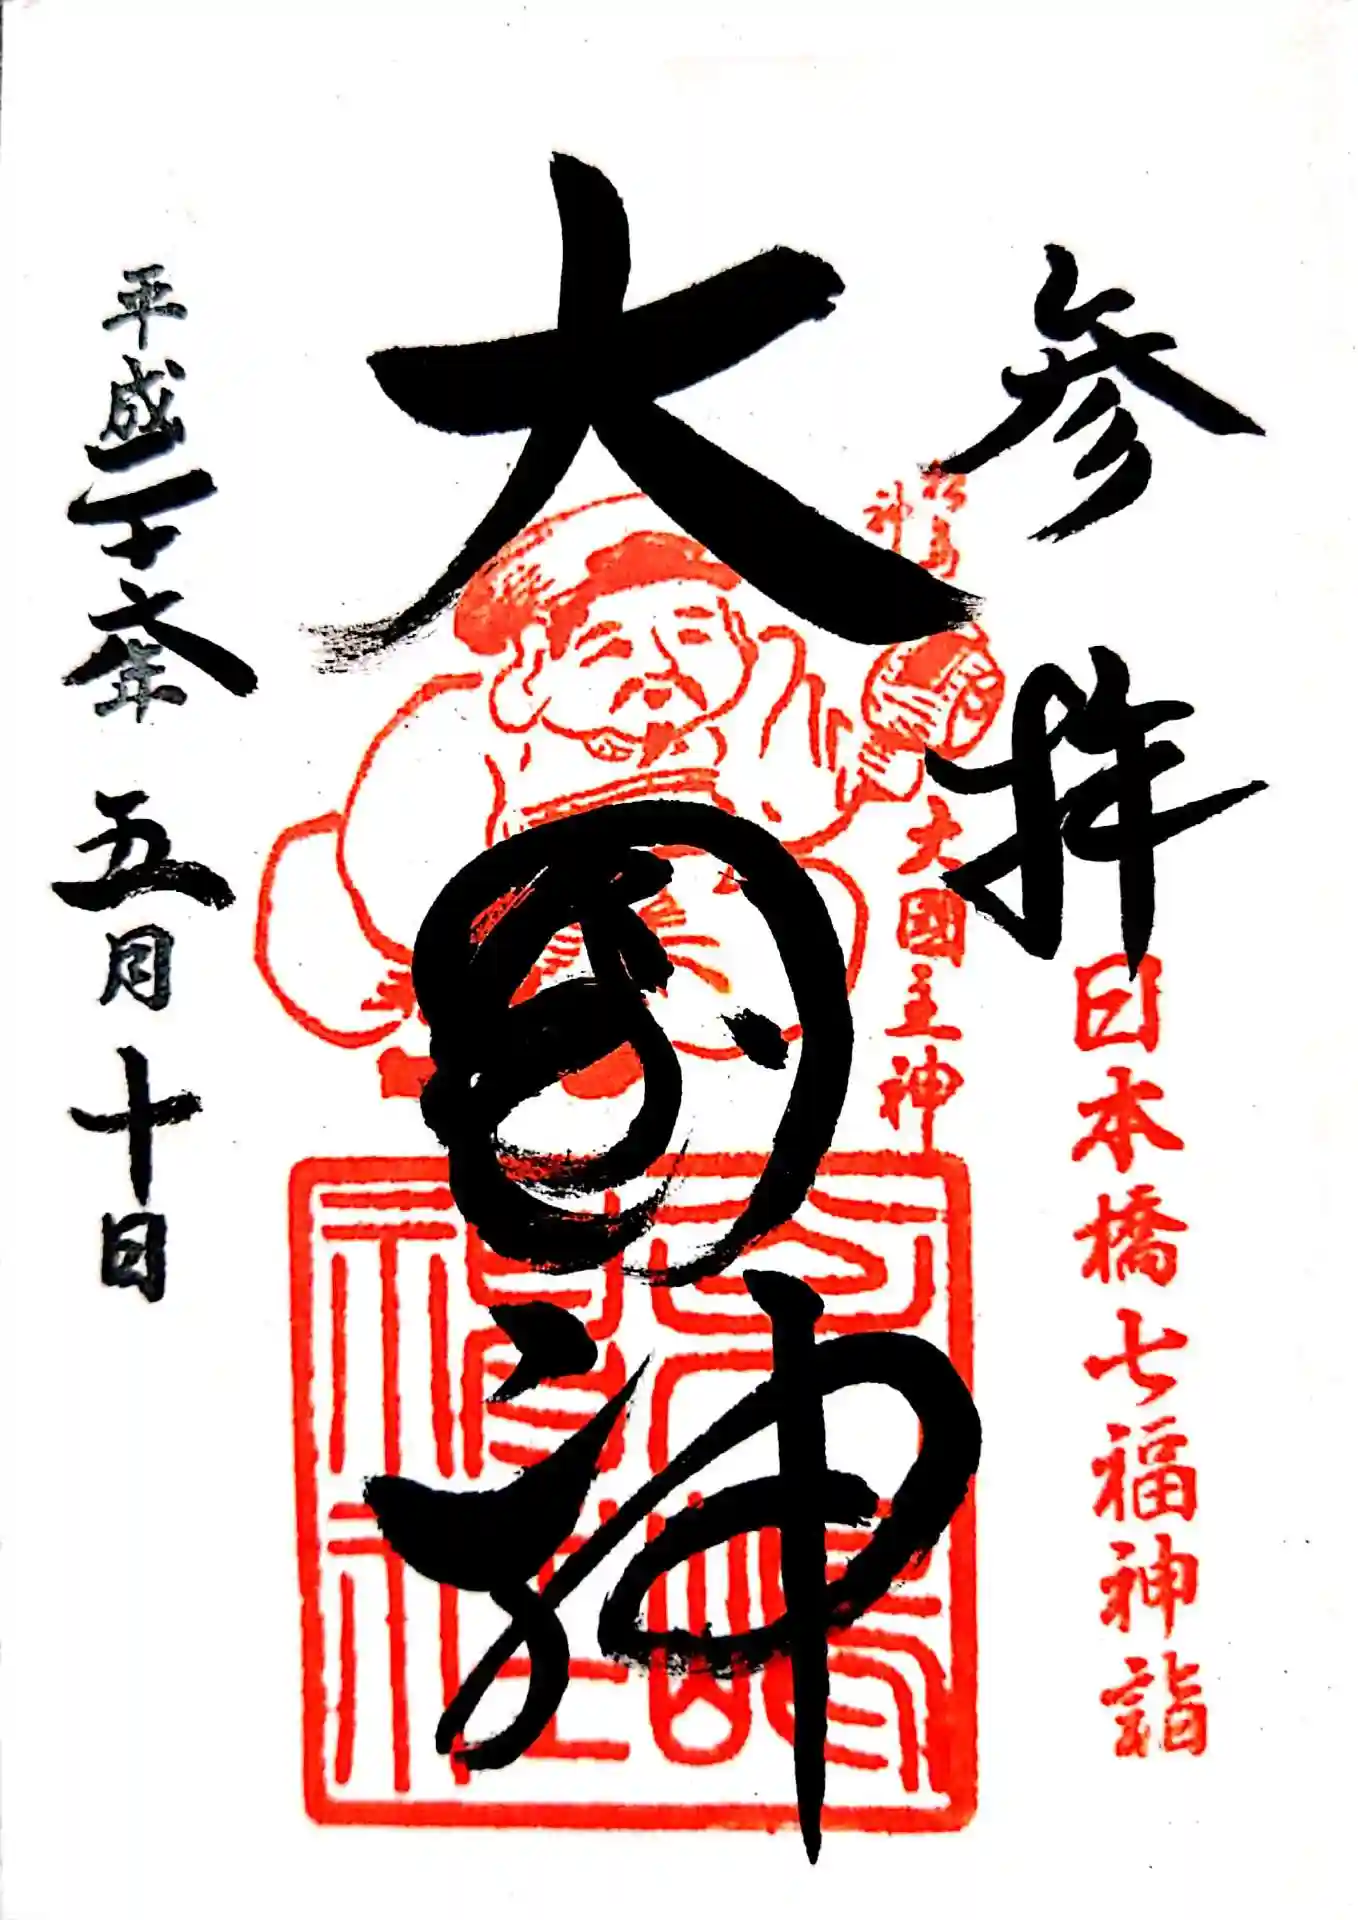 参拝
日本橋七福神詣
松島神
大國主神
大国神
松島神社
平成二十六年五月十日